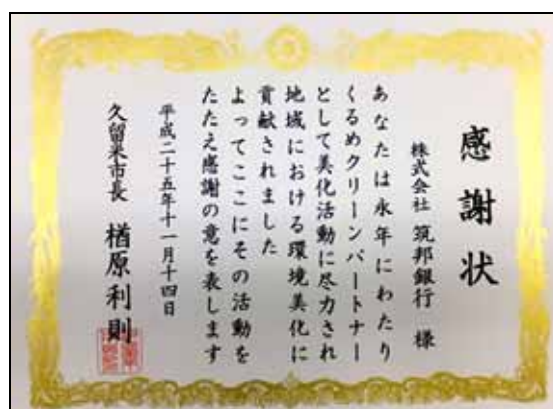 感謝状
株式会社 筑邦銀行 様
あなたは永年にわたり
くるめクリーンパートナー
として美化活動に尽力され
地域における環境美化に
貢献されました
よってここにその活動を
たたえ感謝の意を表します
平成二十五年十一月十四日
久留米市長 楢原利則